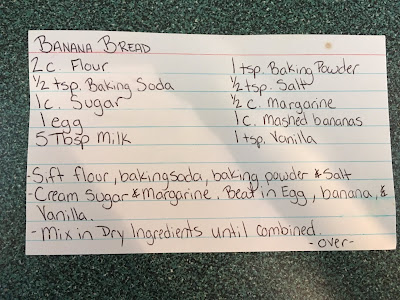 Banana Bread
2 c. Flour 1 tsp. Baking Powder
½ tsp. Baking Soda ½ tsp. Salt
1 c. Sugar ½ c. Margarine
1 egg 1 c. Mashed bananas
5 Tbsp Milk 1 tsp. Vanilla
-Sift flour, baking soda, baking powder & Salt
-Cream Sugar & Margarine. Beat in Egg, banana, &
Vanilla.
-Mix in Dry Ingredients until combined.
-over-